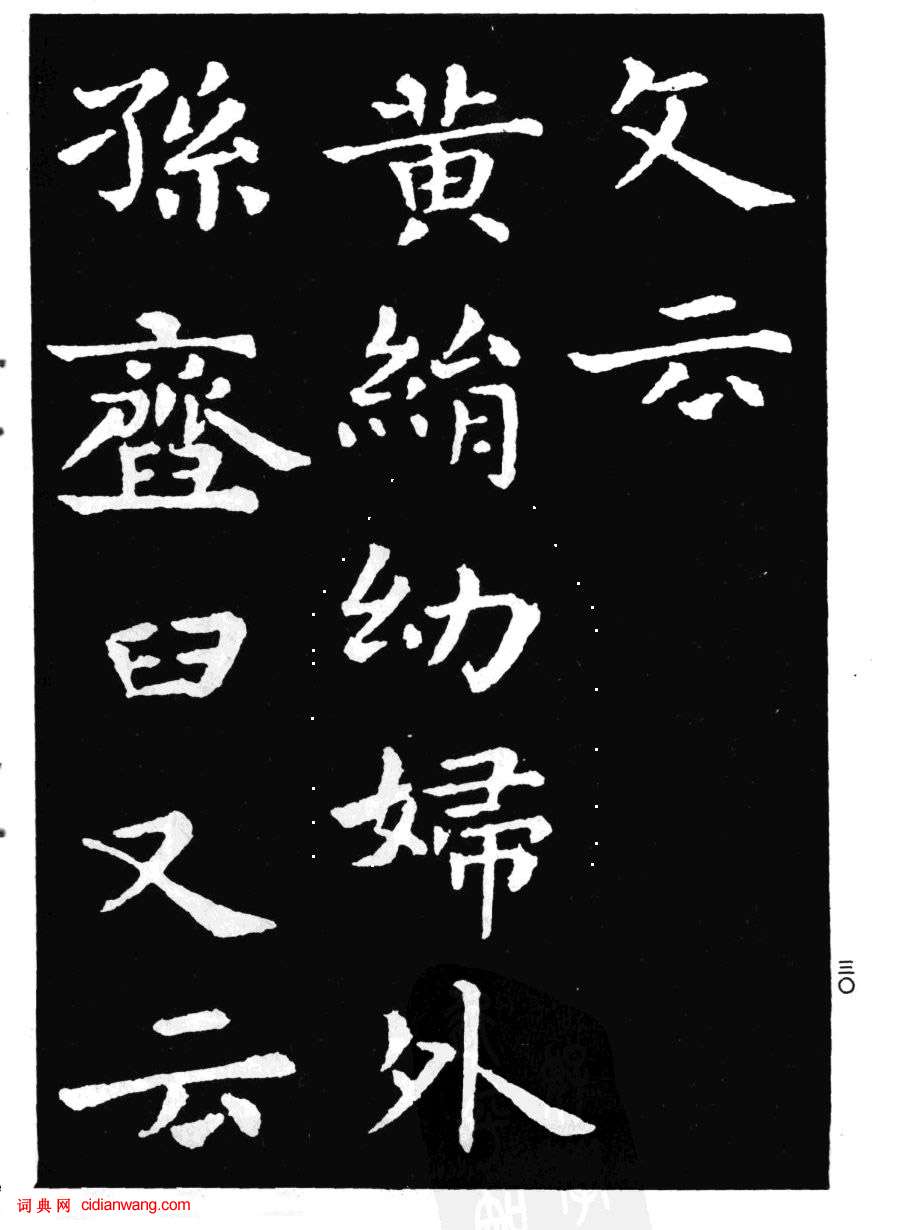 文云
黄絹幼婦外
孫齏臼又云
三〇
词典网 cidianwang.com